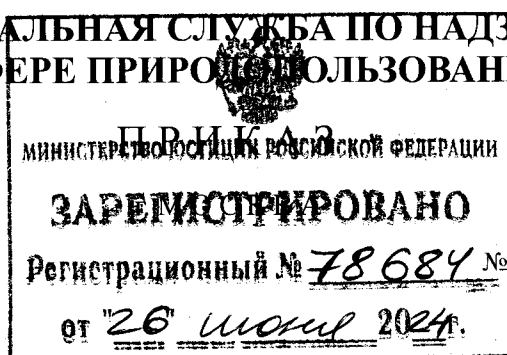 АЛЬНАЯ СЛУЖБА ПО НАДЗ
ФЕРЕ ПРИРОДОПОЛЬЗОВАН
ПРИКАЗ
МИНИСТЕРСТВО ЮСТИЦИИ РОССИЙСКОЙ ФЕДЕРАЦИИ
ЗАРЕГИСТРИРОВАНО
Регистрационный № 78684 №
от "26" июня 2024г.